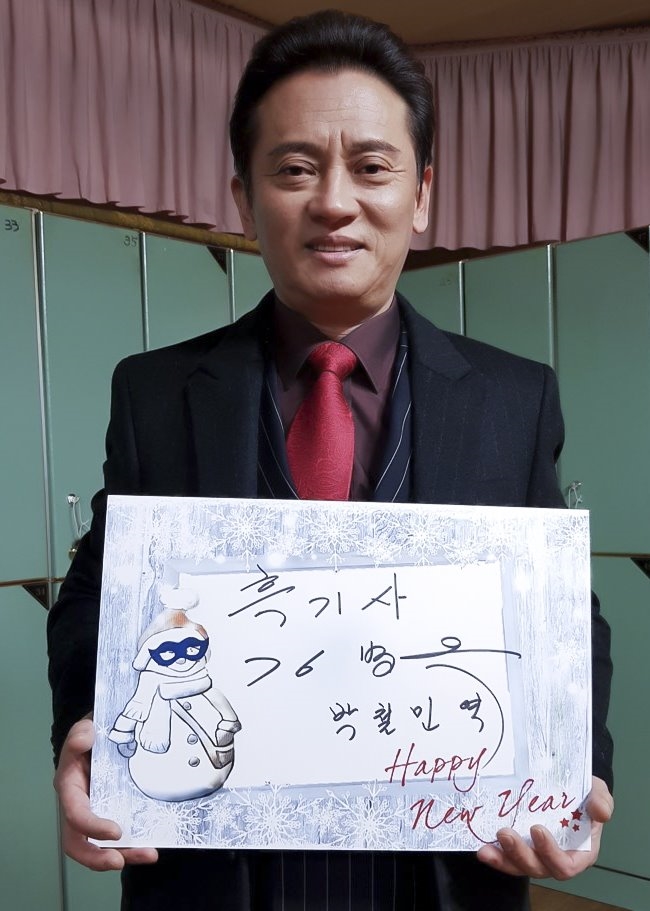 33
35
흑기사
김병옥
박철민 역
Happy
New Year